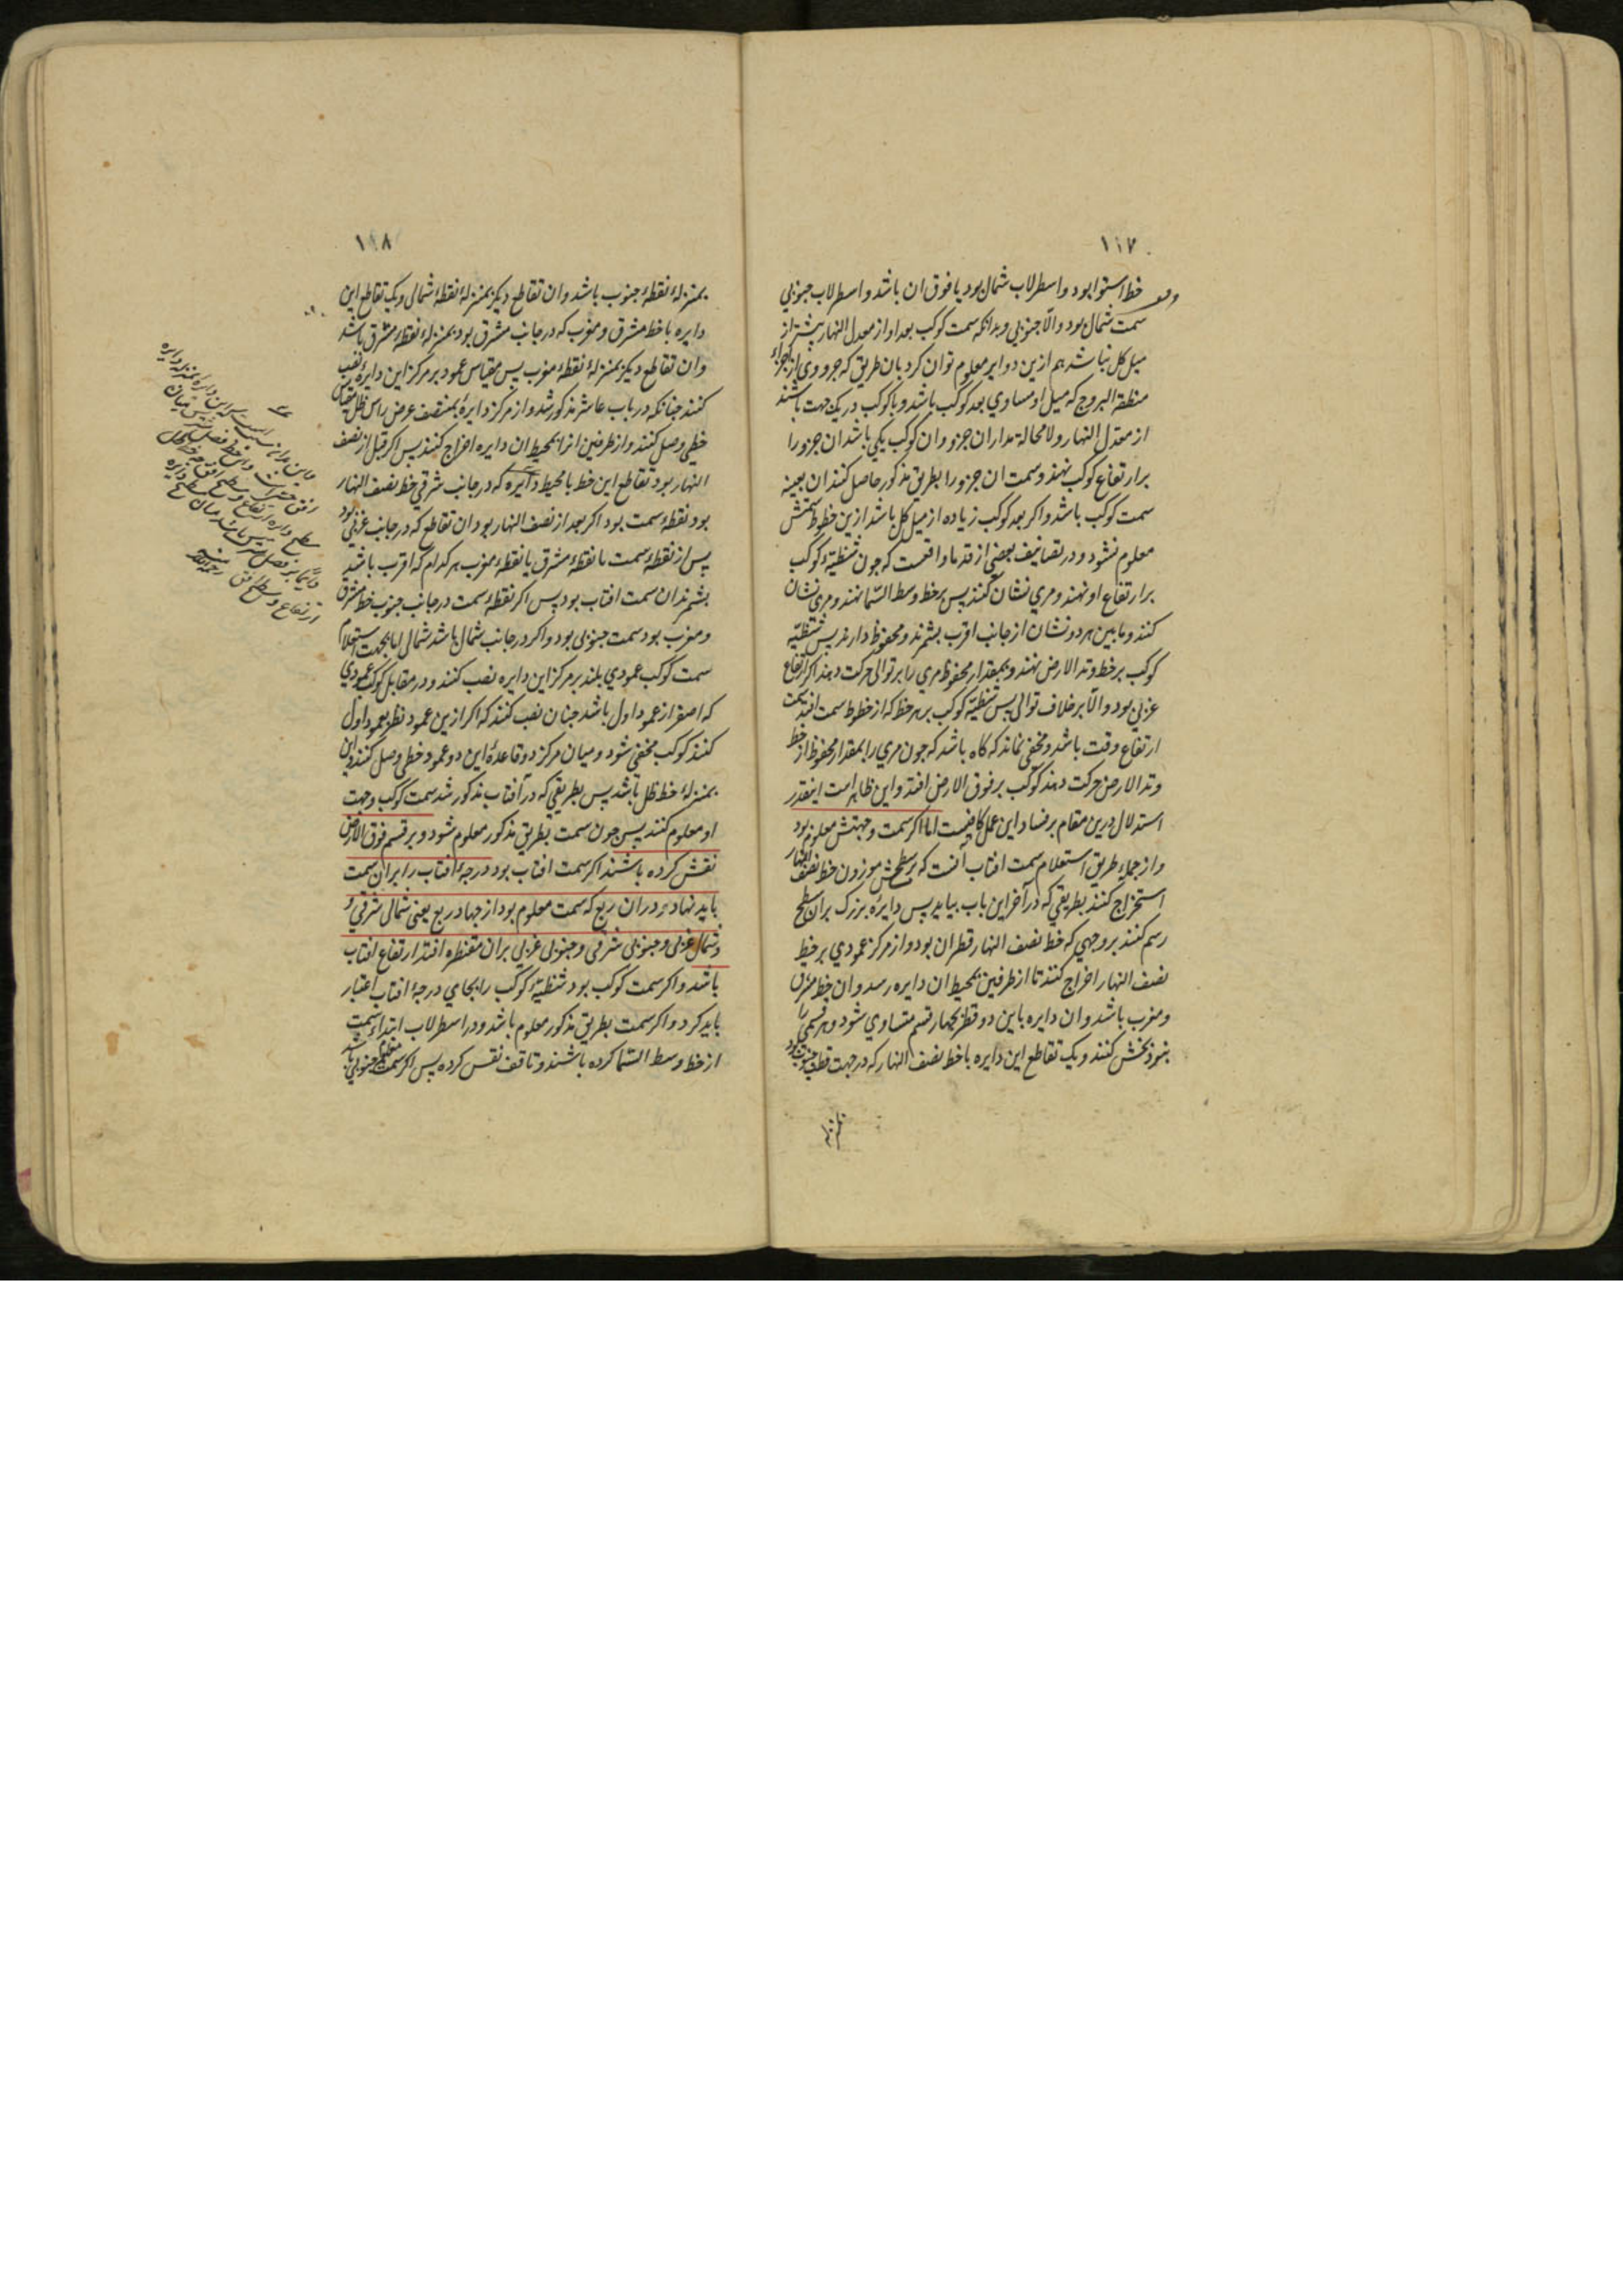 ۱۱۷
خط استوا بود و اسطرلاب شمال بود یا فوق ان باشد و اسطرلاب جنوبی
سمت شمال بود والّا جنوبی و بدانکه سمت کوکب بعد او از معدل النهار بیشتر از
میل کل نباشد هم ازین دوایر معلوم توان کرد بان طریق که جزوی از اجزاء
منطقة البروج که میل او مساوی بعد کوکب باشد و با کوکب در یک جهت باشند
از معدل النهار ولا محالة مداران جزو وان کوکب یکی باشد ان جزو را
بر ارتفاع کوکب نهند و سمت ان جزو را بطریق مذکور حاصل کنند ان بعینه
سمت کوکب باشد و اکر بعد کوکب زیاده از میل کل باشد ازین خطوط سمتش
معلوم نشود و در تصانیف بعضی از قدما واقعست که جون شظیّهٔ کوکب
بر ارتفاع او نهند و مری نشان کنند پس بر خط وسط السّما نهند و مری نشان
کنند و ما بین هر دو نشان از جانب اقرب بشمرند و محفوظ دارند پس شظیّه
کوکب بر خط وتد الارض نهند و بمقدار محفوظ مری را بر توالی حرکت دهند اکر ارتفاع
غربی بود والّا بر خلاف توالی پس شظیّه کوکب بر هر خط که از خطوط سمت افتد سمت
ارتفاع وقت باشد و مخفی نماند که کاه باشد که جون مری را بمقدار محفوظ از خط
وتد الارض حرکت دهند کوکب بر فوق الارض افتد و این ظاهر است اینقدر
استدلال درین مقام بر فساد این عمل کافیست اما اکر سمت و جهتش معلوم بود
و از جمله طریق استعلام سمت افتاب آنست که بر سطحش موزون خط نصف النهار
استخراج کنند بطریقی که در آخر این باب بیاید پس دایرهٔ بزرک بران سطح
رسم کنند بر وجهی که خط نصف النهار قطر ان بود و از مرکز عمودی بر خط
نصف النهار اخراج کنند تا از طرفین بمحیط ان دایره رسد وان خط مشرق
و مغرب باشد وان دایره باین دو قطر بچهار قسم متساوی شود و هر قسمی را
بنود بخش کنند و یک تقاطع این دایره با خط نصف النهار که در جهت قطب جنوب بود
۱۱۸
بمنزلهٔ نقطهٔ جنوب باشد وان تقاطع دیکر بمنزلهٔ نقطهٔ شمالی و یک تقاطع این
دایره با خط مشرق و مغرب که در جانب مشرق بود بمنزلهٔ نقطهٔ مشرق باشد
وان تقاطع دیکر بمنزلهٔ نقطهٔ مغرب پس مقیاس عمود بر مرکز این دایره نصب
کنند جنانکه در باب عاشر مذکور شد و از مرکز دایره بمنتصف عرض راس ظل مقیاس
خطی وصل کنند و از طرفین انرا بمحیط ان دایره اخراج کنند پس اکر قبل از نصف
النهار بود تقاطع این خط با محیط دایره که در جانب شرقی خط نصف النهار
بود نقطهٔ سمت بود اکر بعد از نصف النهار بود ان تقاطع که در جانب غربی بود
پس از نقطهٔ سمت تا نقطهٔ مشرق یا نقطهٔ مغرب هر کدام که اقرب باشد
بشمرند ان سمت افتاب بود پس اکر نقطهٔ سمت در جانب جنوب خط مشرق
و مغرب بود سمت جنوبی بود و اکر در جانب شمال باشد شمالی اما بجهت استعلام
سمت کوکب عمودی بلند بر مرکز این دایره نصب کنند و در مقابل کوکب عمودی
که اصغر از عمود اول باشد جنان نصب کنند که اکر ازین عمود نظر بعمود اول
کنند کوکب مخفی شود و میان مرکز دو قاعدهٔ این دو عمود خطی وصل کنند و این
بمنزلهٔ خط ظل باشد پس بطریقی که در آفتاب مذکور شد سمت کوکب و جهت
او معلوم کنند پس جون سمت بطریق مذکور معلوم شود و بر قسم فوق الارض
نقش کرده باشند اکر سمت افتاب بود درجهٔ افتاب را بر ان سمت
باید نهاد در ان ربع که سمت معلوم بود از جهار ربع یعنی شمال شرقی و
و شمال غربی و جنوبی شرقی و جنوبی غربی بران مقنطره افتد ارتفاع افتاب
باشد و اکر سمت کوکب بود شظیّهٔ کوکب را بجای درجهٔ افتاب اعتبار
باید کرد و اکر سمت بطریق مذکور معلوم باشد و در اسطرلاب ابتداء سمت
از خط وسط السّما کرده باشند و تا قف نقش کرده پس اکر سمت معلوم جنوبی باشد